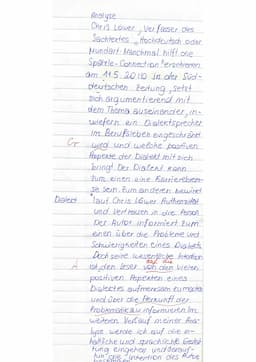 Analyse
Chris Löwer, Verfasser des
Sachtextes „Hochdeutsch oder
Mundart-Manchmal hilft die
Spätzle-Connection" erschienen
am 11.5.2010 in der Süd-
deutschen Zeitung, setzt
sich argumentierend mit
dem Thema auseinander, in-
wiefern ein Dialektsprecher
im Berufsleben eingeschränkt
Gr wird und welche positiven
Aspekte der Dialekt mit sich
bringt. Der Dialekt kann
zum einen eine Karrierebrem-
se sein. Zum anderen bewirkt
Dialekt laut Chris Löwer Authentizität
und Vertrauen in die Person.
Der Autor informiert zum
einen über die Probleme und
Schwierigkeiten eines Dialekts.
Doch seine wesentliche Intention
auf die
A ist, den Leser von den vielen
positiven Aspekten eines
Dialektes aufmerksam zu machen
und über die Herkunft der
Problematik zu informieren. Im
weiteren Verlauf meiner Ana-
lyse werde ich auf die in-
haltliche und sprachliche Gestal-
tung eingehen und darauf-
hin die Intention des